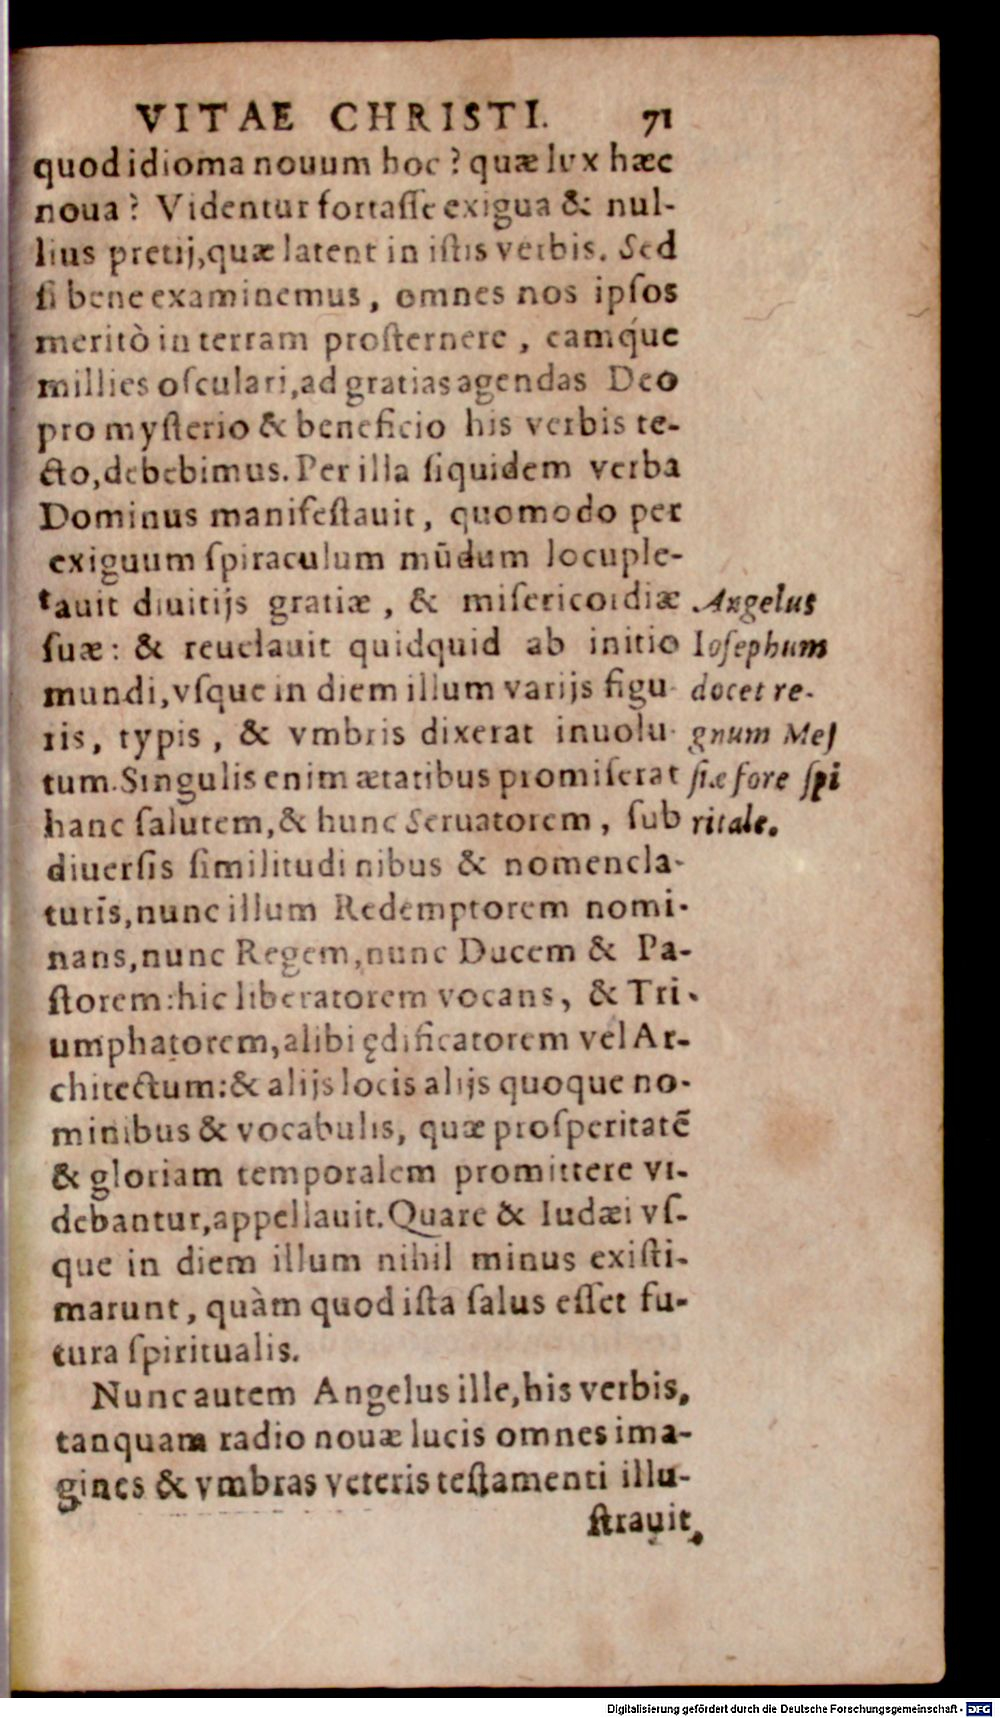 VITAE CHRISTI. 71
quod idioma nouum hoc? quæ lux hæc
noua? Videntur fortaſſe exigua & nul-
lius pretij, quæ latent in iſtis verbis. Sed
ſi bene examinemus, omnes nos ipſos
meritò in terram proſternere, eamq́ue
millies oſculari, ad gratias agendas Deo
pro myſterio & beneficio his verbis te-
cto, debebimus. Per illa ſiquidem verba
Dominus manifeſtauit, quomodo per
exiguum ſpiraculum mūdum locuple-
tauit diuitijs gratiæ, & miſericordiæ
ſuæ: & reuelauit quidquid ab initio
mundi, vſque in diem illum varijs figu
ris, typis, & vmbris dixerat inuolu
tum. Singulis enim ætatibus promiſerat
hanc ſalutem, & hunc Seruatorem, ſub
diuerſis ſimilitudi nibus & nomencla-
turis, nunc illum Redemptorem nomi-
nans, nunc Regem, nunc Ducem & Pa-
ſtorem: hic liberatorem vocans, & Tri-
umphatorem, alibi ędificatorem vel Ar-
chitectum: & alijs locis alijs quoque no-
minibus & vocabulis, quæ proſperitatē
& gloriam temporalem promittere vi-
debantur, appellauit. Quare & Iudæi vſ-
que in diem illum nihil minus exiſti-
marunt, quàm quod iſta ſalus eſſet fu-
tura ſpiritualis.
Nunc autem Angelus ille, his verbis,
tanquam radio nouæ lucis omnes ima-
gines & vmbras veteris teſtamenti illu-
ſtrauit
Angelus
Ioſephum
docet re-
gnum Meſ
ſiæ fore ſpi
ritale.
Digitalisierung gefördert durch die Deutsche Forschungsgemeinschaft - DFG